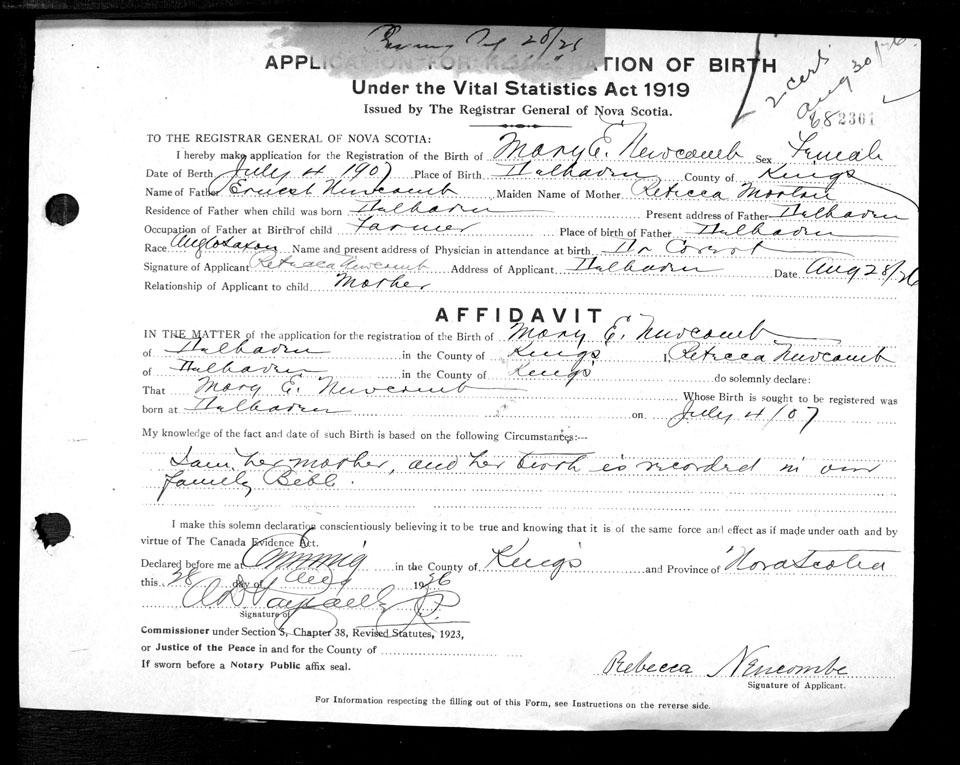 28/26
APPLICATION FOR REGISTRATION OF BIRTH
2 cert
Aug 30/26.
Under the Vital Statistics Act 1919
Issued by The Registrar General of Nova Scotia.
682361
TO THE REGISTRAR GENERAL OF NOVA SCOTIA:
I hereby make application for the Registration of the Birth of Mary E. Newcomb Sex Female
Date of Berth July 4 1907 Place of Birth Halharven County of Kings
Name of Father Ernest Newcomb Maiden Name of Mother Rebecca
Residence of Father when child was born Present address of Father
Occupation of Father at Birth of child Farmer Place of birth of Father
Race Anglosaxon Name and present address of Physician in attendance at birth Dr
Signature of Applicant Rebecca Newcomb Address of Applicant Date Aug 28/26
Relationship of Applicant to child Mother
AFFIDAVIT
IN THE MATTER of the application for the registration of the Birth of Mary E. Newcomb
of in the County of Kings I, Rebecca Newcomb
of in the County of Kings do solemnly declare:
That Mary E. Newcomb Whose Birth is sought to be registered was
born at on July 4/07
My knowledge of the fact and date of such Birth is based on the following Circumstances:—
I am her mother, and her birth is recorded in our
family Bible.
I make this solemn declaration conscientiously believing it to be true and knowing that it is of the same force and effect as if made under oath and by
virtue of The Canada Evidence Act.
Declared before me at Canning in the County of Kings and Province of Nova Scotia
this 28 day of Aug 1926
Signature of
Commissioner under Section 5, Chapter 38, Revised Statutes, 1923,
or Justice of the Peace in and for the County of
If sworn before a Notary Public affix seal.
Rebecca Newcombe
Signature of Applicant.
For Information respecting the filling out of this Form, see Instructions on the reverse side.